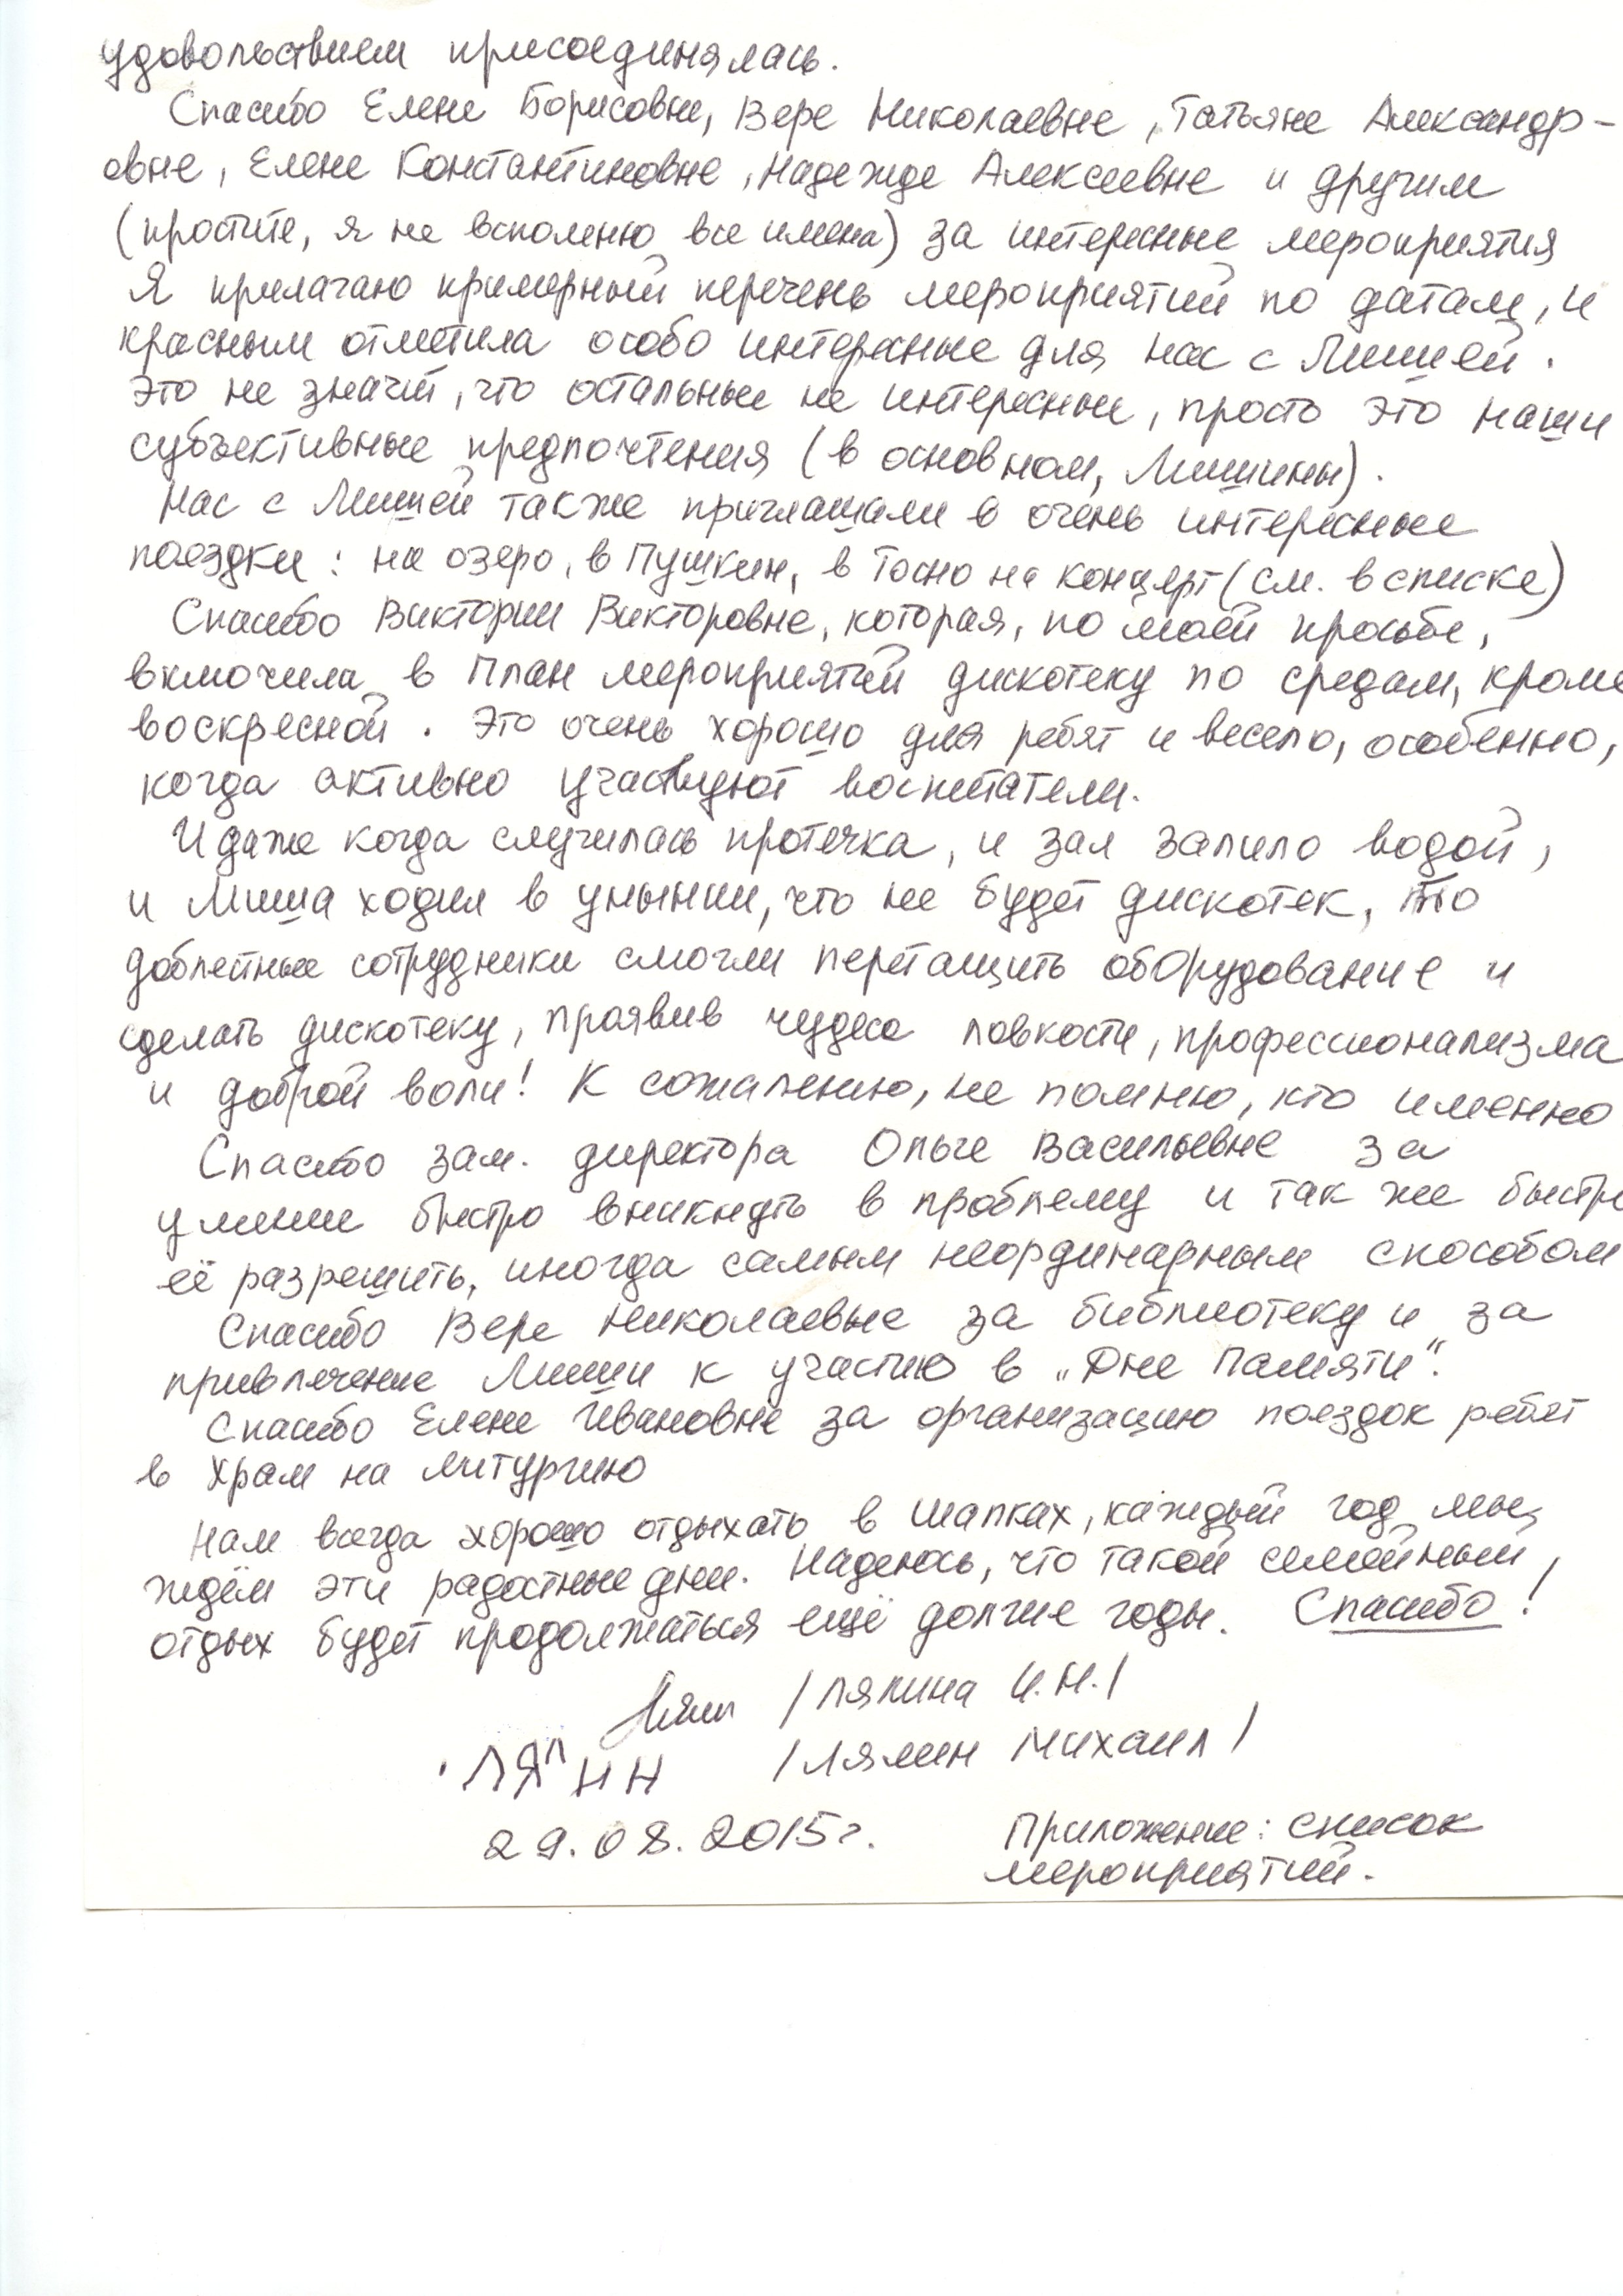 удовольствием присоединялась.
Спасибо Елене Борисовне, Вере Николаевне, Татьяне Александр-
овне, Елене Константиновне, Надежде Алексеевне и другим
(простите, я не вспомню все имена) за интересные мероприятия
Я прилагаю примерный перечень мероприятий по датам, и
красным отметила особо интересные для нас с Мишей.
Это не значит, что остальные не интересные, просто это наши
субъективные предпочтения (в основном, Мишины).
Нас с Мишей также приглашали в очень интересные
поездки: на озеро, в Пушкин, в Тосно на концерт (см. в списке)
Спасибо Виктории Викторовне, которая, по моей просьбе,
включила в План мероприятий дискотеку по средам, кроме
воскресной. Это очень хорошо для ребят и весело, особенно,
когда активно участвуют воспитатели.
И даже когда случилась протечка, и зал залило водой,
и Миша ходил в унынии, что не будет дискотек, то
доблестные сотрудники смогли перетащить оборудование и
сделать дискотеку, проявив чудеса ловкости, профессионализма
и доброй воли! К сожалению, не помню, кто именно
Спасибо зам. директора Ольге Васильевне за
умение быстро вникнуть в проблему и так же быстро
её разрешить, иногда самым неординарным способом
Спасибо Вере Николаевне за библиотеку и за
привлечение Миши к участию в „Дне Памяти“.
Спасибо Елене Ивановне за организацию поездок ребят
в Храм на Литургию
Нам всегда хорошо отдыхать в Шапках, каждый год мы
ждём эти радостные дни. Надеюсь, что такой семейный
отдых будет продолжаться ещё долгие годы. Спасибо!
/Ляпина И.Н./
ЛЯПИН /Ляпин Михаил/
29.08.2015г.
Приложение: список
мероприятий.